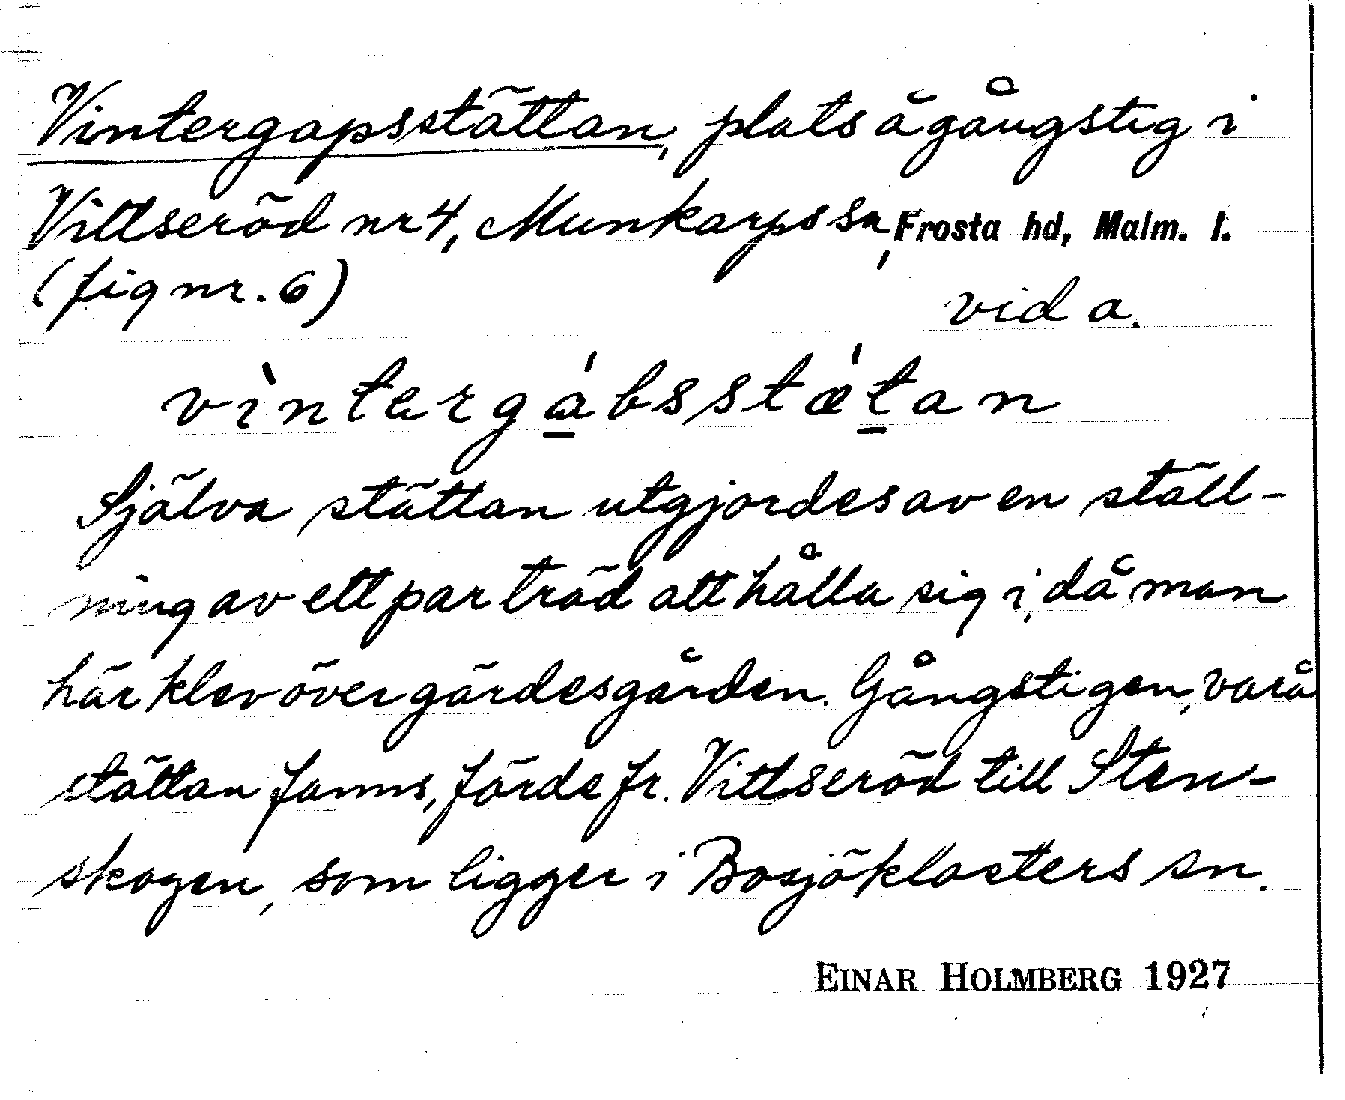 Vintergapsstättan, plats å gångstig i
Vittseröd nr 4, Munkarps sn, Frosta hd, Malm. l.
(fig nr. 6)
vid a.
vìntərgá̱bsstǽt̲an
Själva stättan utgjordes av en ställ-
ning av ett par träd att hålla sig i, då man
här klev över gärdesgården. Gångstigen, varå
stättan fanns, förde fr. Vittseröd till Sten-
skogen, som ligger i Bosjöklosters sn.
EINAR HOLMBERG 1927